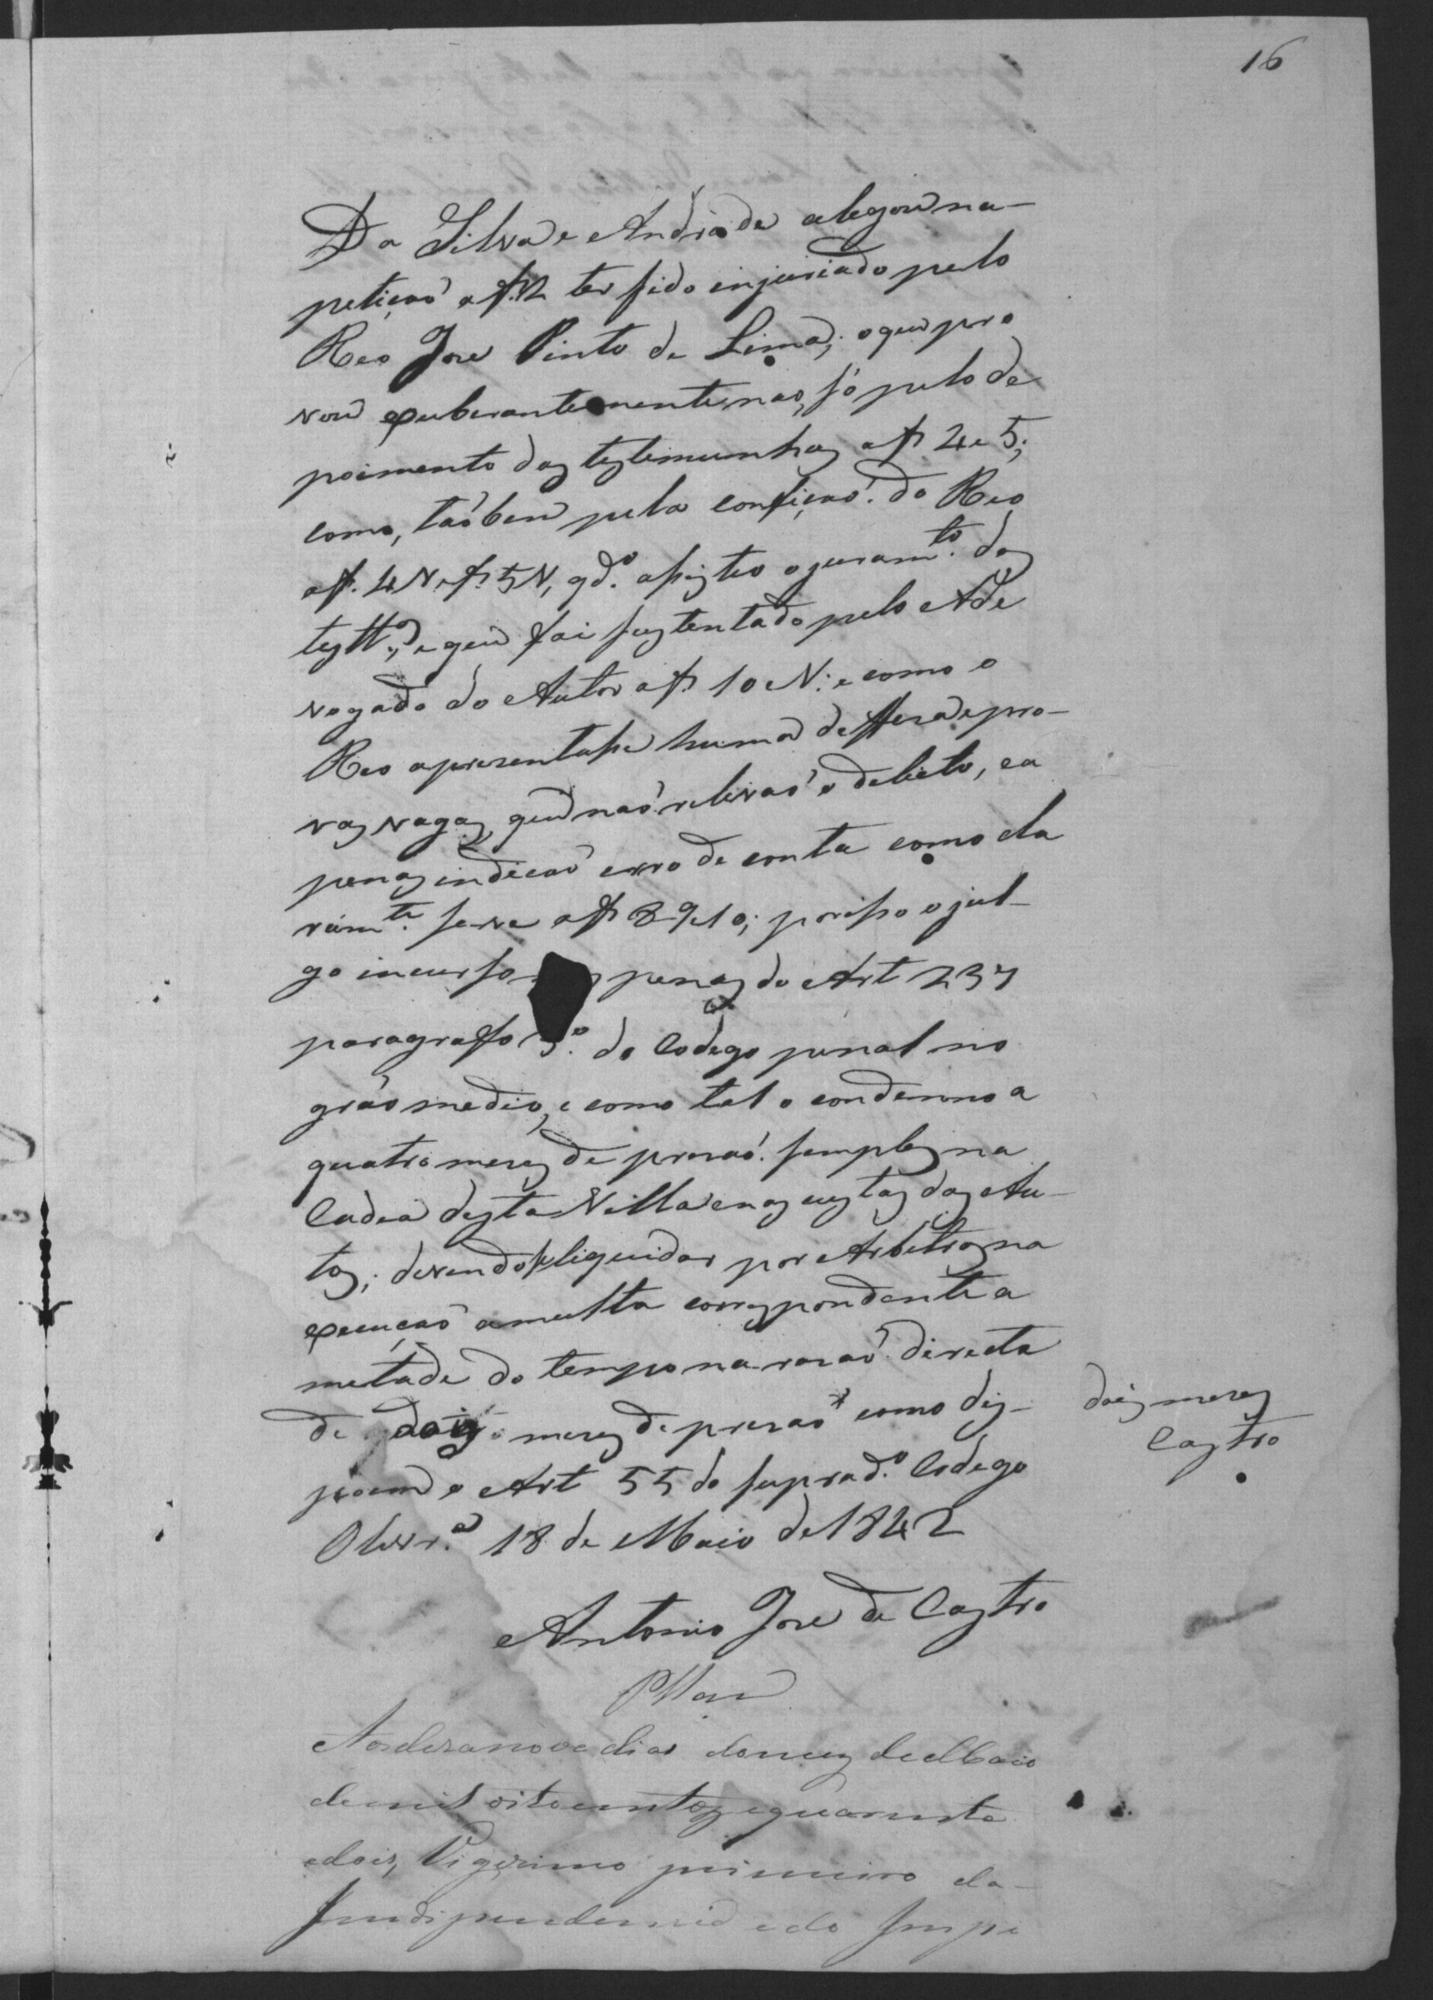 16
Da Silva e Andrade alegou na-
petiçaõ a f. 2 ter sido injuriado pelo
Reo Joze Pinto de Lima; o que pro
vou exuberantemente, naõ, só pelo de
poimento das testemunhas a f. 4 e 5;
como, taõbem pela confiçaõ do Reo
a f. 4 V. e f. 5 V, qdo. asistio o juramto. das
testas., e que foi sustentado pelo Ade
vogado do Autor a f. 10 e V: e como o
Reo aprezentase huma deffeza e pro-
vas vagas, que naõ relevaõ o delicto, e a
penas indicaõ erro de conta como cla
ramte. se ve a f. 8 9 e 10; por iso o jul-
go incurso penas do Art 237
paragraffo 3o. do Codego penal no
gráo medio, e como tal o condenno a
quatro mezes de prizaõ. semples na
Cadea desta Villa e nas custas dos Au-
tos; devendose liquidar por Arbitros na
execuçaõ a multa correspondente a
metade do tempo na razaõ directa
de dois mezes de prezaõ como dis-
poem o Art 55 do suprado. Codego
Olivra. 18 de Maio de 1842
dois mezes
Castro
Antonio Joze de Castro
Aos dezanove dias do mez de Maio
de mil oito centos e quarenta
e dois, Vigezimo primeiro da-
Independencia e do Impe